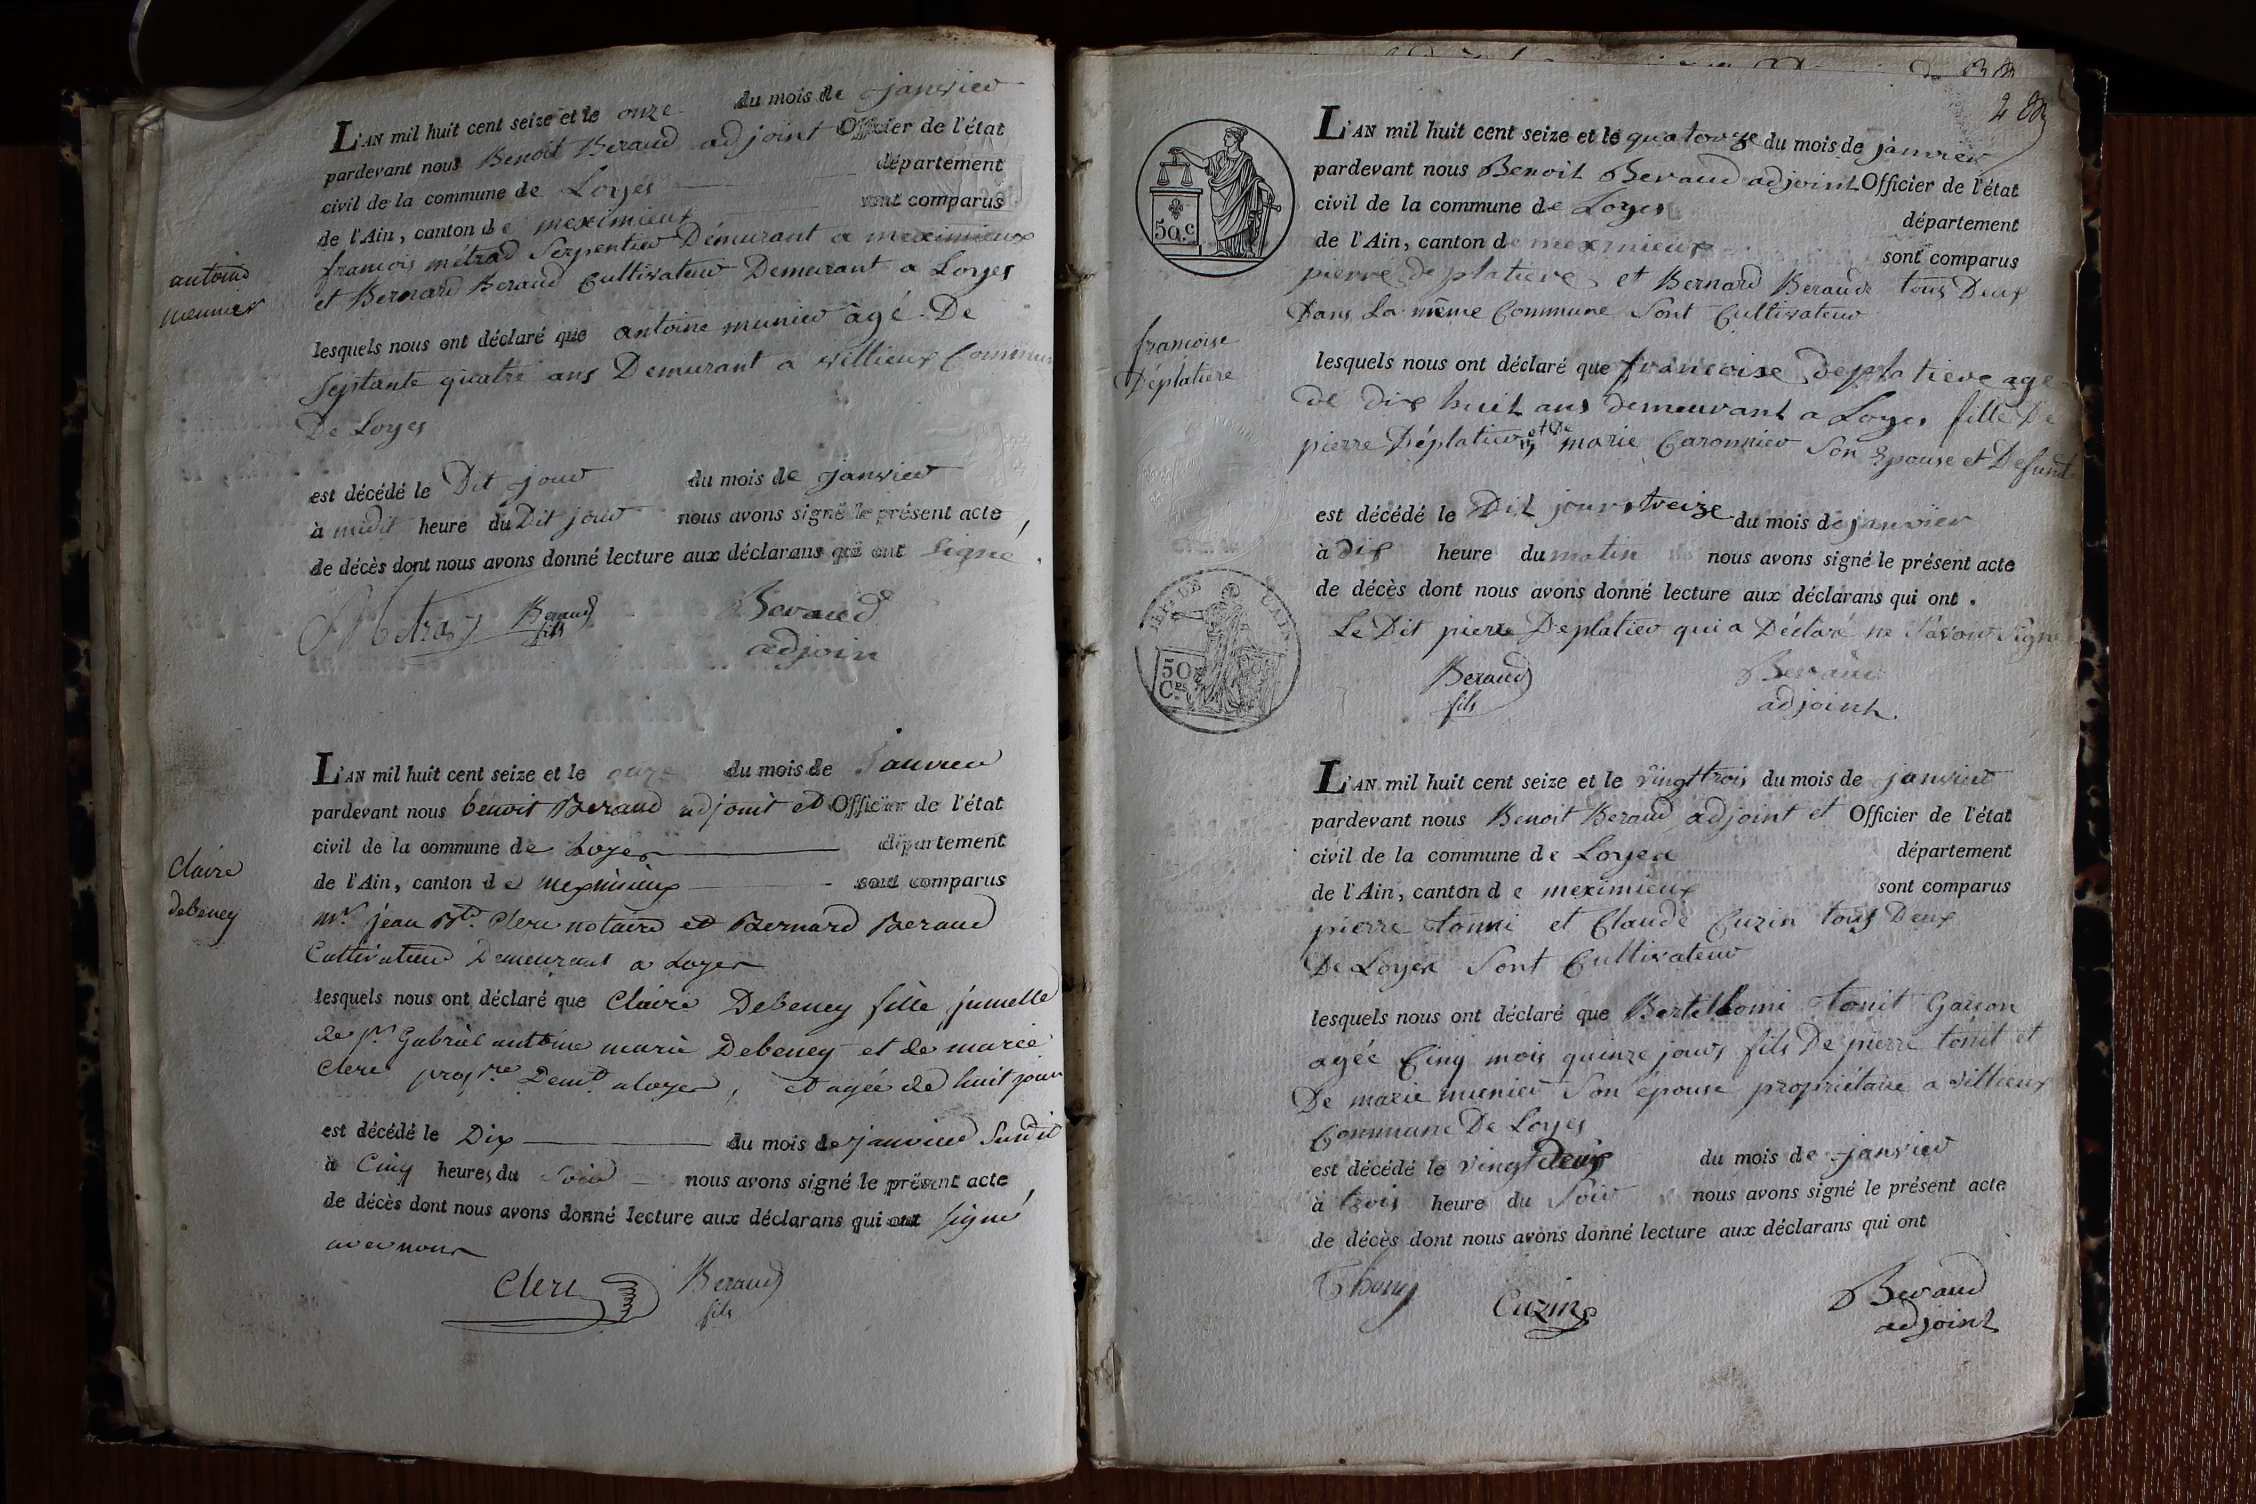 L'AN mil huit cent seize et le onze du mois de janvier
pardevant nous Benoit Beraud adjoint Officier de l'état
civil de la commune de Loyes département
de l'Ain, canton de meximieux sont comparus
francois métrad Serpentier Démurant a meximieux
et Bernard Beraud Cultivateur Demeurant a Loyes
antoine
meunier
lesquels nous ont déclaré que antoine munier âgé De
Septante quatre ans Demurant a villieux Commune
De Loyes
est décédé le Dit jour du mois de janvier
à midit heure du Dit jour nous avons signé le présent acte
de décès dont nous avons donné lecture aux déclarans qui ont signé
Beraud Beraud
fils adjoin
L'AN mil huit cent seize et le onze du mois de Janvier
pardevant nous benoit Beraud adjoint et Officier de l'état
civil de la commune de Loyes département
de l'Ain, canton de meximieux sont comparus
Claire
debeney
mr. jean Bte. Clerc notaire et Bernard Beraud
Cultivateur Demeurant a Loyes
lesquels nous ont déclaré que Claire Debeney fille jumelle
de Sr Gabriel antoine marie Debeney et de marie
Clerc propre. Demt. a loyes, et agée de huit jours
est décédé le Dix du mois de janvier Susdit
à Cinq heures du Soir nous avons signé le présent acte
de décès dont nous avons donné lecture aux déclarans qui ont signé
avec nous
Clerc Beraud
fils
288
50.c
L'AN mil huit cent seize et le quatorze du mois de janvier
pardevant nous Benoit Beraud adjoint Officier de l'état
civil de la commune de Loyes département
de l'Ain, canton de meximieux sont comparus
pierre deplatiere et Bernard Beraud tous Deux
Dans La même Commune Sont Cultivateur
francoise
Déplatiere
lesquels nous ont déclaré que francoise deplatiere age
de dix huit ans demeurant a Loyes fille De
pierre Déplatier et de marie Caronnier Son Epouse et Defunt
est décédé le Dit jour treize du mois de janvier
à dix heure du matin nous avons signé le présent acte
de décès dont nous avons donné lecture aux déclarans qui ont .
Le Dit pierre Deplatier qui a Déclaré ne Savoir Signe
50
Ces
Beraud Beraud
fils adjoint
L'AN mil huit cent seize et le vingttrois du mois de janvier
pardevant nous Benoit Beraud adjoint et Officier de l'état
civil de la commune de Loyes département
de l'Ain, canton de meximieux sont comparus
pierre tonni et Claude Cuzin tous Deux
De Loyes Sont Cultivateur
lesquels nous ont déclaré que Bertellomi tonit Garcon
agée Cinq mois quinze jours fils De pierre tonit et
De marie munier Son épouse propriétaire a villieux
Commune De Loyes
est décédé le vingt Deux du mois de janvier
à trois heure du Soir nous avons signé le présent acte
de décès dont nous avons donné lecture aux déclarans qui ont
Thony Cuzin Beraud
adjoint